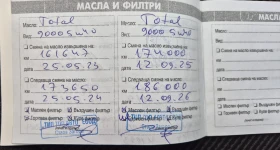 МАСЛА И ФИЛТРИ
Масло: Total
Вид: 9000 5w40
Смяна на масло извършена на:
км 161647
дата 25.05.23
Следваща смяна на масло:
км 173650
дата 25.05.24
Маслен филтър Въздушен филтър
Горивен филтър
Масло: Total
Вид: 9000 5w40
Смяна на масло извършена на:
км 174000
дата 12.09.25
Следваща смяна на масло:
км 186000
дата 12.09.26
Маслен филтър Въздушен филтър
Горивен филтър
Масло:
Вид:
Смяна на масло
км
дата
Следваща
км
дата
Маслен